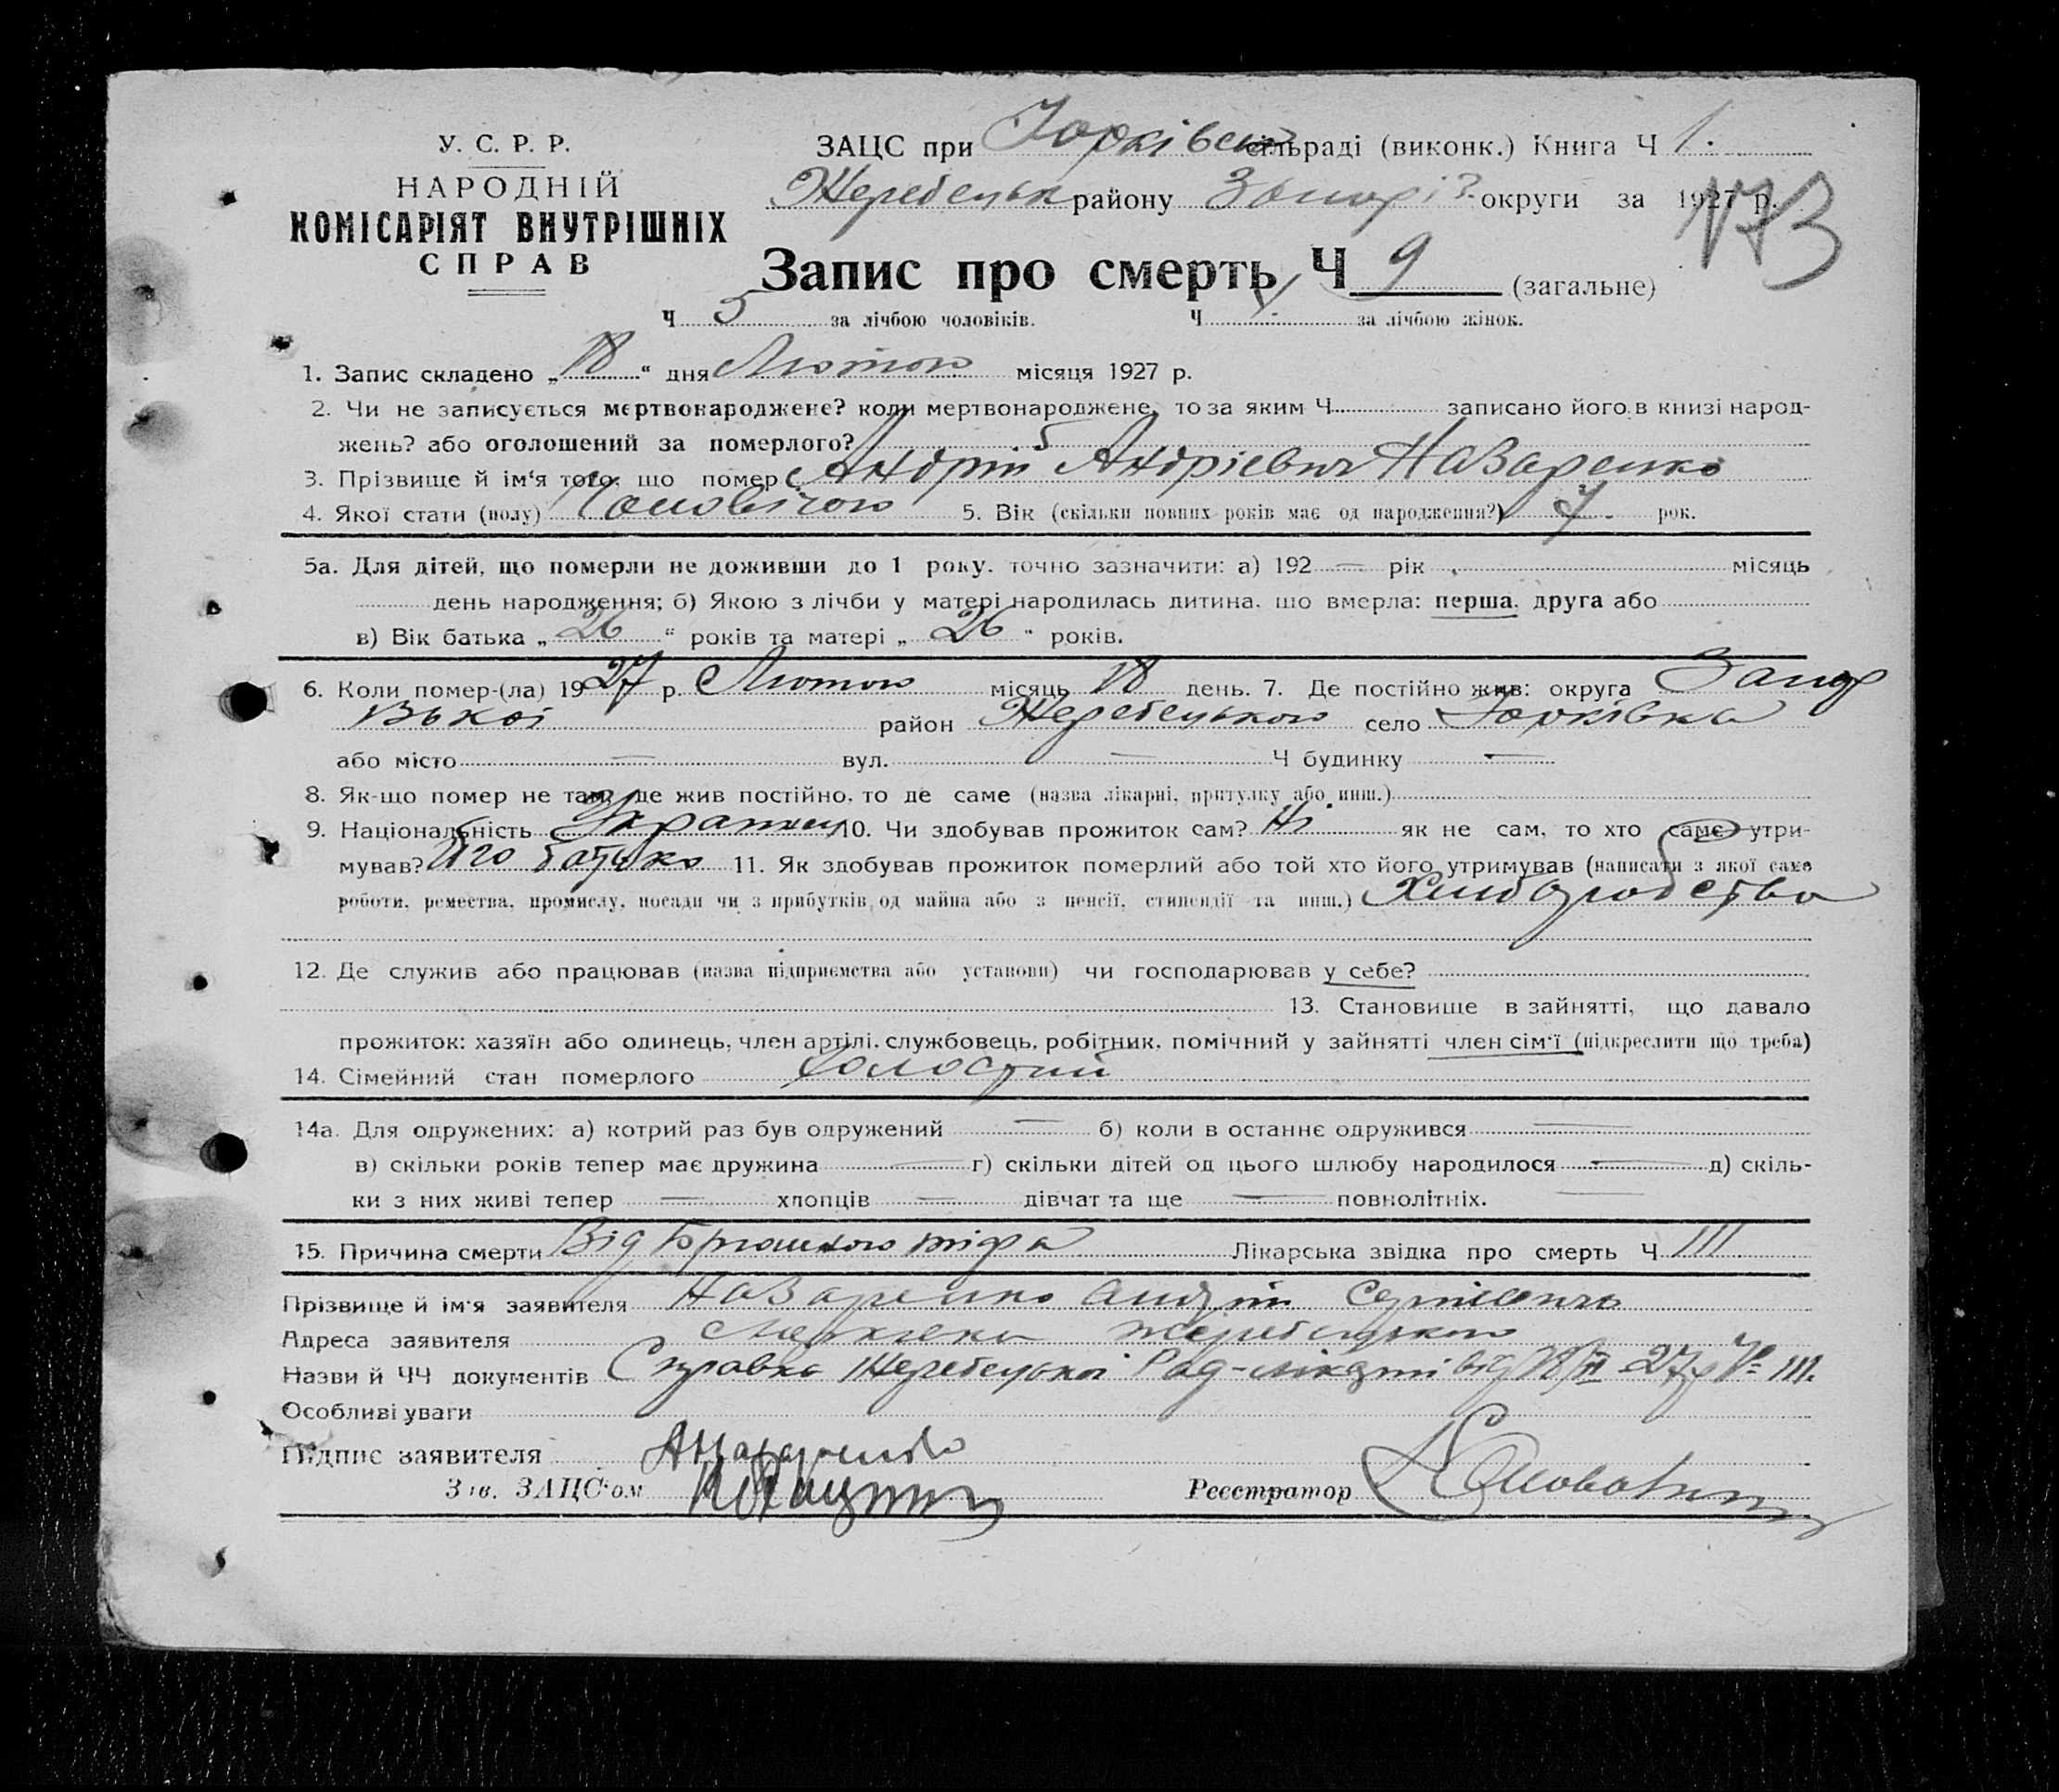 У. С. Р. Р.
НАРОДНІЙ
КОМІСАРІЯТ ВНУТРІШНІХ
СПРАВ
ЗАЦС при Юрківськ сільраді (виконк.) Книга Ч 1.
Жеребецьк району Запоріз. округи за 1927 р.
173
Запис про смерть Ч 9 (загальне)
Ч 5 за лічбою чоловіків. Ч за лічбою жінок.
1. Запис складено „18“ дня Лютого місяця 1927 р.
2. Чи не записується мертвонароджене? коли мертвонароджене, то за яким Ч записано його в книзі народ-
жень? або оголошений за померлого?
3. Прізвище й ім‘я того, що помер Андрій Андрієвич Назаренко
4. Якої стати (полу) Чоловічого 5. Вік (скільки повних років має од народження?) рок.
5а. Для дітей, що померли не доживши до 1 року. точно зазначити: а) 192 — рік місяць
день народження; б) Якою з лічби у матері народилась дитина, що вмерла: перша, друга або
в) Вік батька „26“ років та матері „26“ років.
6. Коли помер-(ла) 1927 р. Лютого місяць 18 день. 7. Де постійно жив: округа Запор
район Жеребецького село Юрківка
або місто — вул. — Ч будинку —
8. Як-що помер не там, де жив постійно, то де саме (назва лікарні, притулку або инш.)
9. Національність Українец 10. Чи здобував прожиток сам? Ні як не сам, то хто саме утри-
мував? Його батько 11. Як здобував прожиток померлий або той хто його утримував (написати з якої саме
роботи, ремества, промислу, посади чи з прибутків од майна або з пенсії, стипендії та инш.) Хліборобство
12. Де служив або працював (назва підприємства або установи) чи господарював у себе?
13. Становище в зайнятті, що давало
прожиток: хазяїн або одинець, член артілі, службовець, робітник, помічний у зайнятті член сім‘ї (підкреслити що треба)
14. Сімейний стан померлого Холостий
14а. Для одружених: а) котрий раз був одружений — б) коли в останнє одружився —
в) скільки років тепер має дружина — г) скільки дітей од цього шлюбу народилося — д) скіль-
ки з них живі тепер — хлопців — дівчат та ще — повнолітніх. —
15. Причина смерти Від Брюшного тіфа Лікарська звідка про смерть Ч 111.
Прізвище й ім‘я заявителя Назаренко Андрій Сергієвич
Адреса заявителя Жеребецького
Назви й ЧЧ документів Справка Жеребецької Рад-лікарні від 18/II 27 р № 111.
Особливі уваги
Підпис заявителя А Назаренко
Зав. ЗАЦС‘ом
Реєстратор